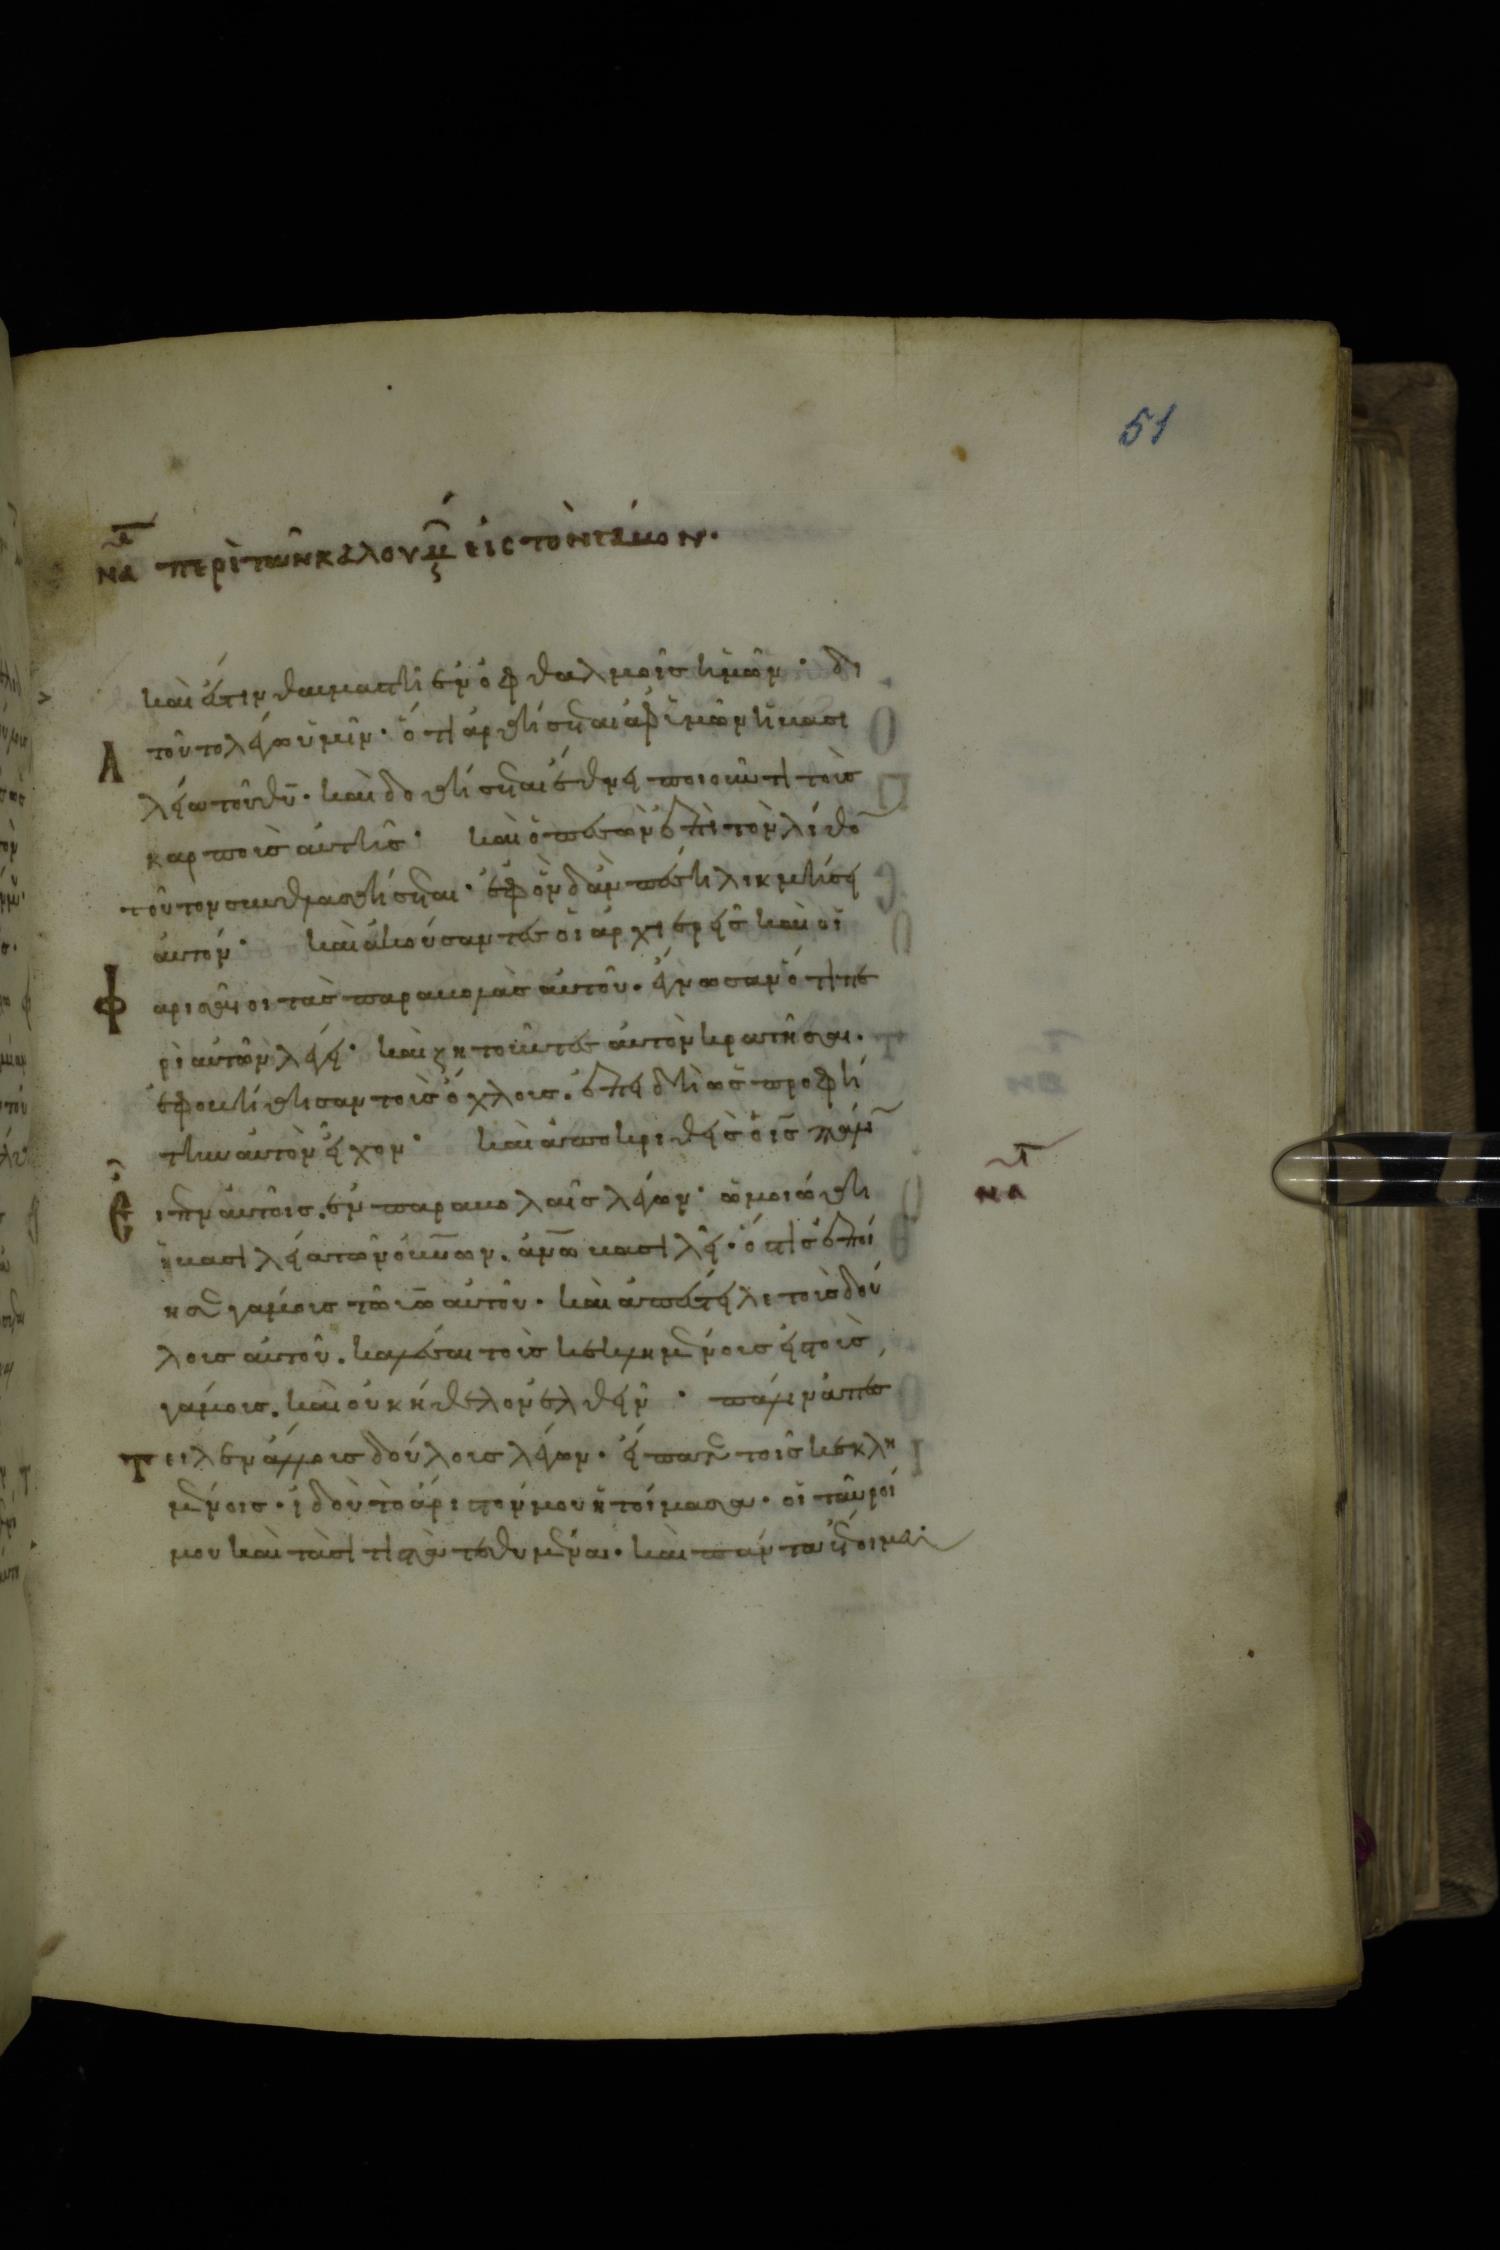 51
να περὶ τῶν καλουμ(έν) εἰς τὸν γάμον.
και ἔστιν θαυμαστὴ ἐν ὀφθαλμοῖς ἡμῶν· δι
ὰ τοῦτο λέγω ὑμῖν· ὅτι ἀρθήσεται ἀφ' ὑμῶν ἡ βασι
λεία τοῦ θυ· καὶ δοθήσεται ἔθνει ποιοῦντι τοὺς
καρποὺς αὐτῆς· καὶ ὁ πεσὼν ἐπὶ τὸν λίθο
τοῦτον συνθλασθήσεται· ἐφ' ὃν δ' ἂν πέσῃ λικμήσει
αὐτόν· καὶ ἀκούσαντες οἱ ἀρχιερεῖς καὶ οἱ
φαρισαῖοι τὰς παραβολὰς αὐτοῦ. ἔγνωσαν ὅτι πε
ρὶ αὐτῶν λέγει· καὶ ζητοῦντες αὐτὸν κρατῆσαι.
ἐφοβήθησαν τοὺς ὄχλους. ἐπειδὴ ὡς προφή
την αὐτὸν εἶχον· καὶ ἀποκριθεὶς ὁ ις πάλιν
εἶπεν αὐτοῖς. ἐν παραβολαῖς λέγων· ὡμοιώθη
ἡ βασιλεία τῶν οὐνων. ἀνω βασιλεῖ· ὅστις ἐποί
ησε γάμους τῶ υω αὐτοῦ· καὶ ἀπέστειλε τοὺς δού
λους αὐτοῦ. καλέσαι τοὺς κεκλημένους εἰς τοὺς
γάμους. καὶ οὐκ ἤθελον ἐλθεῖν· πάλιν ἀπέσ
τειλεν ἄλλους δούλους λέγων· εἴπατε τοῖς κεκλη
μένοις· ἰδοὺ τὸ ἄριστόν μου ἡτοίμασα· οἱ ταῦροί
μου καὶ τὰ σιτιστὰ τεθυμένα· καὶ πάντα ἕτοιμα·
να